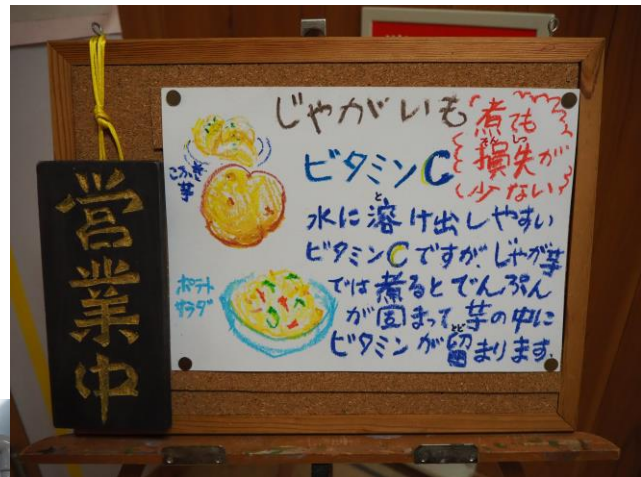 営業中
じゃがいも
ビタミンC
煮ても
損失が
少ない
こふき
芋
ポテト
サラダ
水に溶け出しやすい
ビタミンCですが、じゃが芋
では煮るとでんぷん
が固まって、芋の中に
ビタミンが留まります。